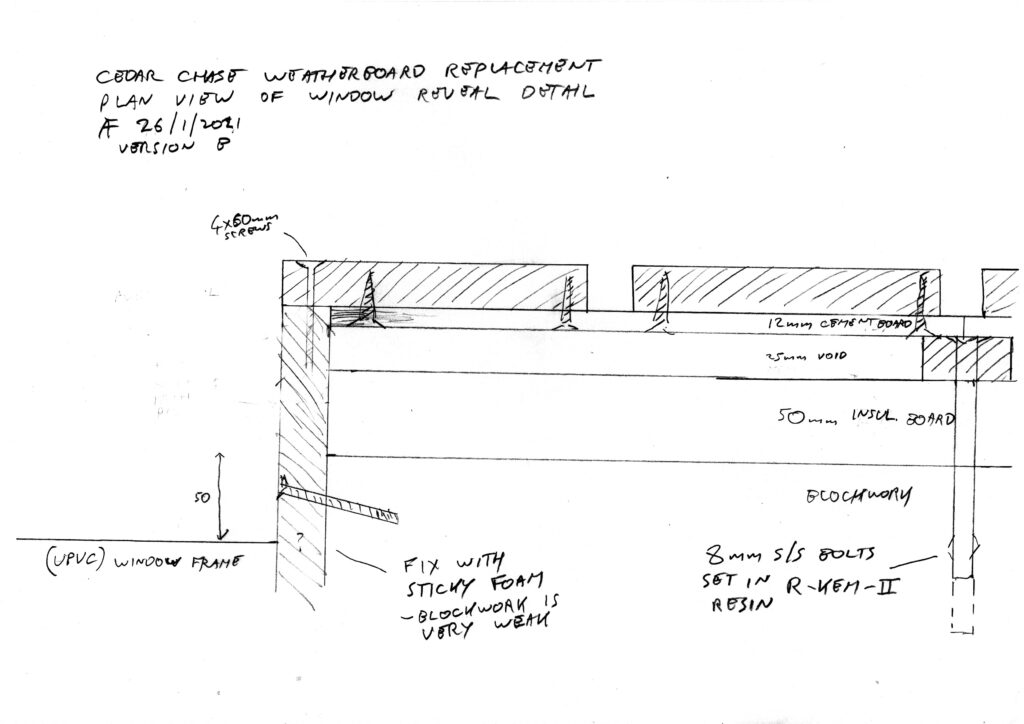 CEDAR CHASE WEATHERBOARD REPLACEMENT
PLAN VIEW OF WINDOW REVEAL DETAIL
AF 26/1/2021
VERSION B
4x60mm
SCREWS
12mm CEMENT BOARD
25mm VOID
50mm INSUL. BOARD
BLOCKWORK
50
?
(UPVC) WINDOW FRAME
FIX WITH
STICKY FOAM
- BLOCKWORK IS
VERY WEAK
8mm S/S BOLTS
SET IN R-KEM-II
RESIN